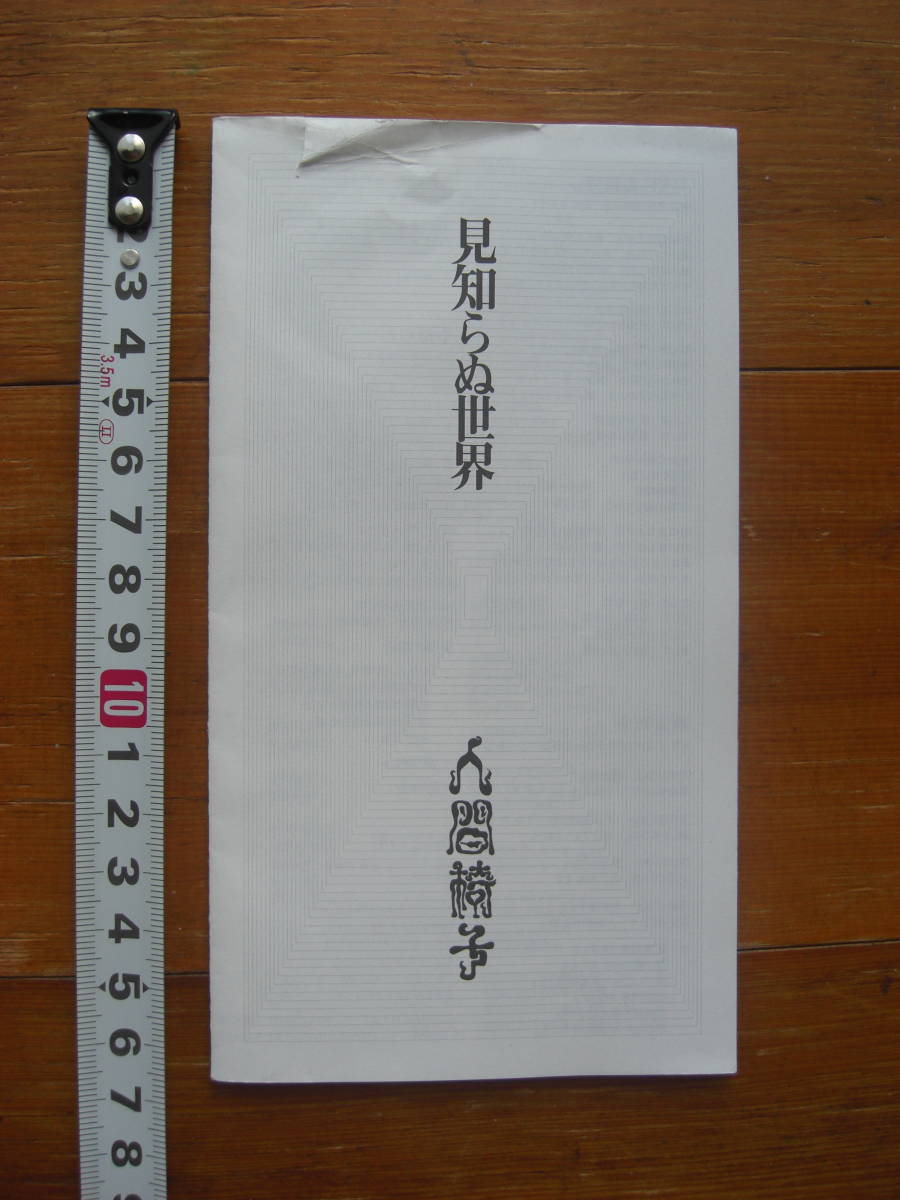 見知らぬ世界
人間椅子
2
3
4
3.5m
5
6
7
8
9
10
1
2
3
4
5
6
7
8
9